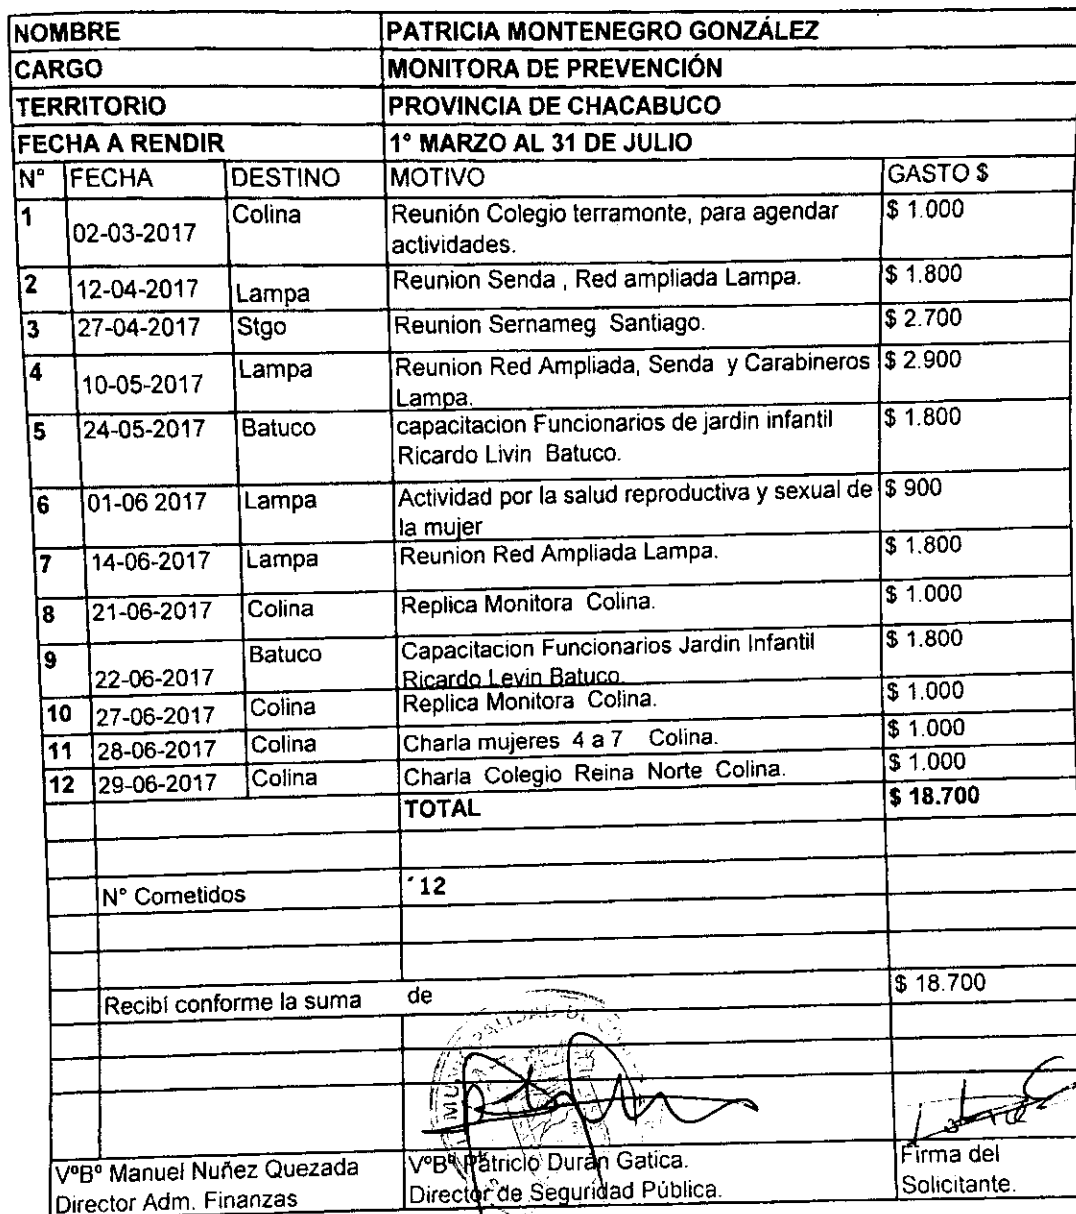 NOMBRE PATRICIA MONTENEGRO GONZÁLEZ
CARGO MONITORA DE PREVENCIÓN
TERRITORIO PROVINCIA DE CHACABUCO
FECHA A RENDIR 1° MARZO AL 31 DE JULIO
N° FECHA DESTINO MOTIVO GASTO $
1 02-03-2017 Colina Reunión Colegio terramonte, para agendar $ 1.000
actividades.
2 12-04-2017 Lampa Reunion Senda , Red ampliada Lampa. $ 1.800
3 27-04-2017 Stgo Reunion Sernameg Santiago. $ 2.700
4 10-05-2017 Lampa Reunion Red Ampliada, Senda y Carabineros $ 2.900
Lampa.
5 24-05-2017 Batuco capacitacion Funcionarios de jardin infantil $ 1.800
Ricardo Livin Batuco.
6 01-06 2017 Lampa Actividad por la salud reproductiva y sexual de $ 900
la mujer
7 14-06-2017 Lampa Reunion Red Ampliada Lampa. $ 1.800
8 21-06-2017 Colina Replica Monitora Colina. $ 1.000
9 22-06-2017 Batuco Capacitacion Funcionarios Jardin Infantil $ 1.800
Ricardo Levin Batuco.
10 27-06-2017 Colina Replica Monitora Colina. $ 1.000
11 28-06-2017 Colina Charla mujeres 4 a 7 Colina. $ 1.000
12 29-06-2017 Colina Charla Colegio Reina Norte Colina. $ 1.000
TOTAL $ 18.700
N° Cometidos ´12
Recibí conforme la suma de $ 18.700
VºBº Manuel Nuñez Quezada VºBº Patricio Durán Gatica. Firma del
Director Adm. Finanzas Director de Seguridad Pública. Solicitante.